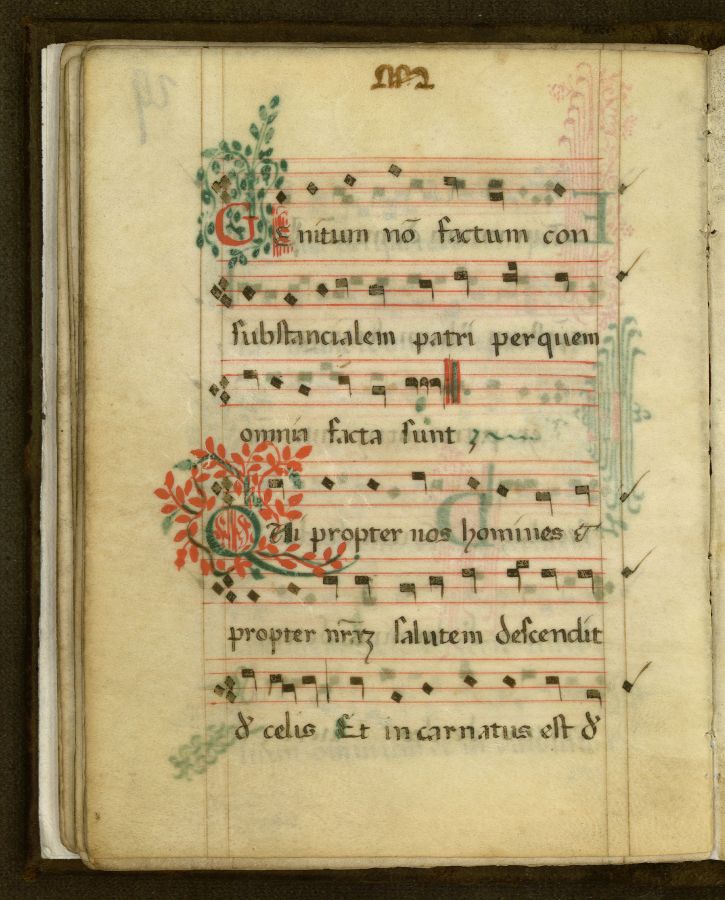 Genitum nõ factum con
substancialem patri per quem
omnia facta sunt
Qui propter nos homines &
propter nr̃aꝫ salutem descendit
d' celis Et in carnatus est d'